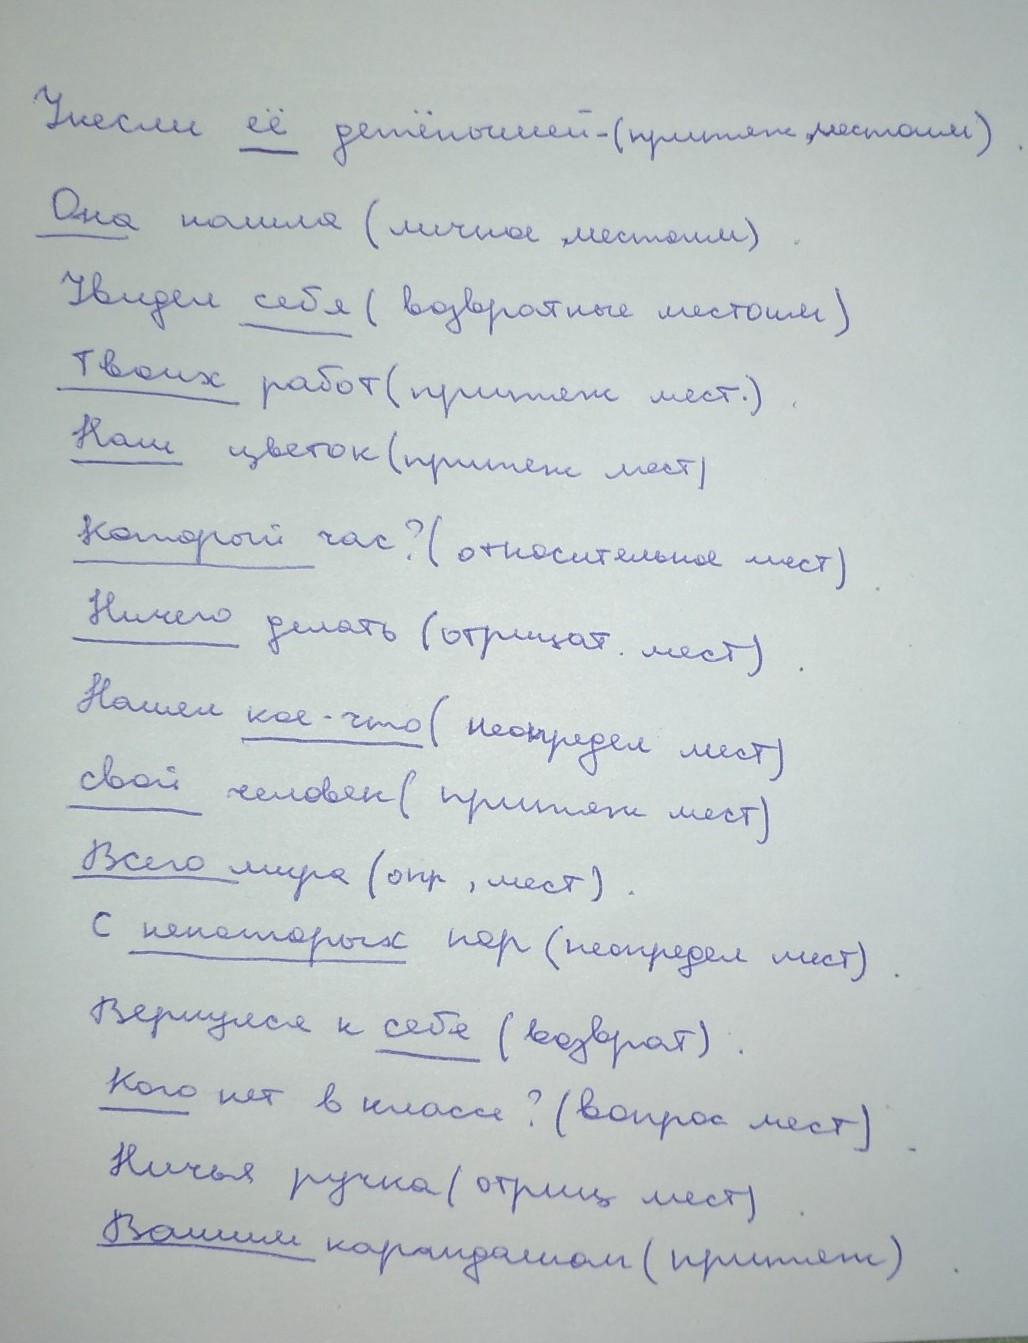 Унесли её детёнышей-(притяж, местоим).
Она пошла (личное местоим).
Увидел себя (возвратные местоим)
Твоих работ (притяж мест.).
Наш цветок (притяж мест)
Который час? (относительное мест).
Ничего делать (отрицат. мест).
Нашел кое-что (неопредел мест)
свой человек (притяж мест)
Всего мира (опр, мест).
С некоторых пор (неопредел мест).
Вернулся к себе (возврат).
Кого нет в классе? (вопрос мест).
Ничья ручка (отриц мест).
Вашим карандашом (притяж).